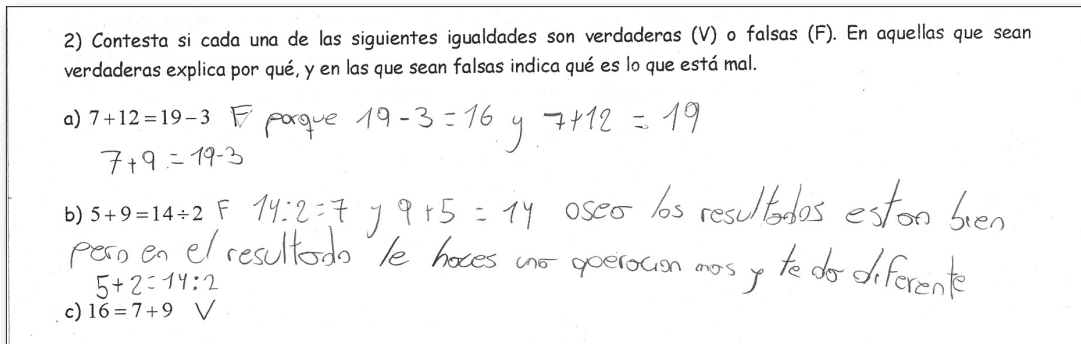 2) Contesta si cada una de las siguientes igualdades son verdaderas (V) o falsas (F). En aquellas que sean
verdaderas explica por qué, y en las que sean falsas indica qué es lo que está mal.
a) 7+12=19−3 F porque 19-3=16 y 7+12 = 19
7+9 = 19-3
b) 5+9=14÷2 F 14:2=7 y 9+5 = 14 osea los resultados estan bien
pero en el resultado le haces una operacion mas y te da diferente
5+2=14:2
c) 16=7+9 V